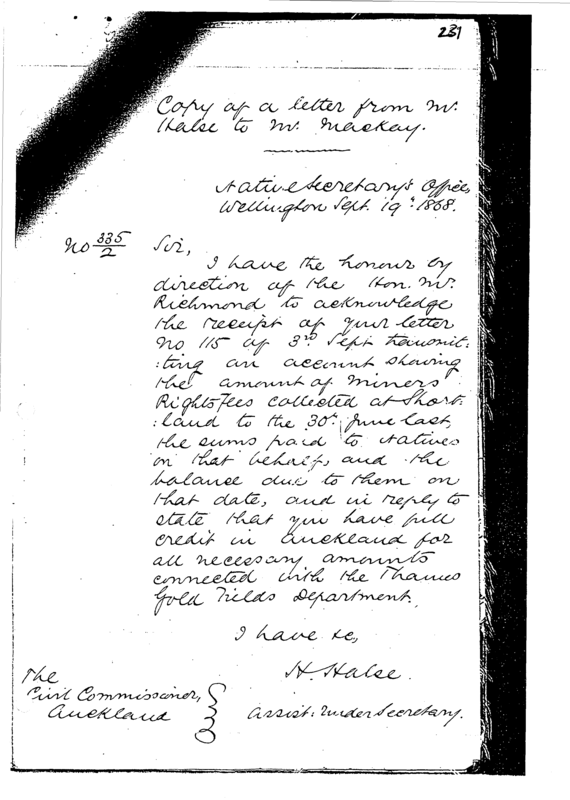 231
Copy of a letter from Mr.
Halse to Mr. Mackay.
Native Secretary's Office,
Wellington Sept. 19th 1868.
No 335/2
Sir,
I have the honour by
direction of the Hon. Mr.
Richmond to acknowledge
the receipt of your letter
No 115 of 3rd Sept transmit:
:ting an account showing
the amount of Miners'
Rights fees collected at Short:
:land to the 30th June last,
the sums paid to Natives
on that behalf, and the
balance due to them on
that date, and in reply to
state that you have full
credit in Auckland for
all necessary amounts
connected with the Thames
Gold Fields Department.
I have &c,
H. Halse.
Assist: Under Secretary.
The
Civil Commissioner,
Auckland